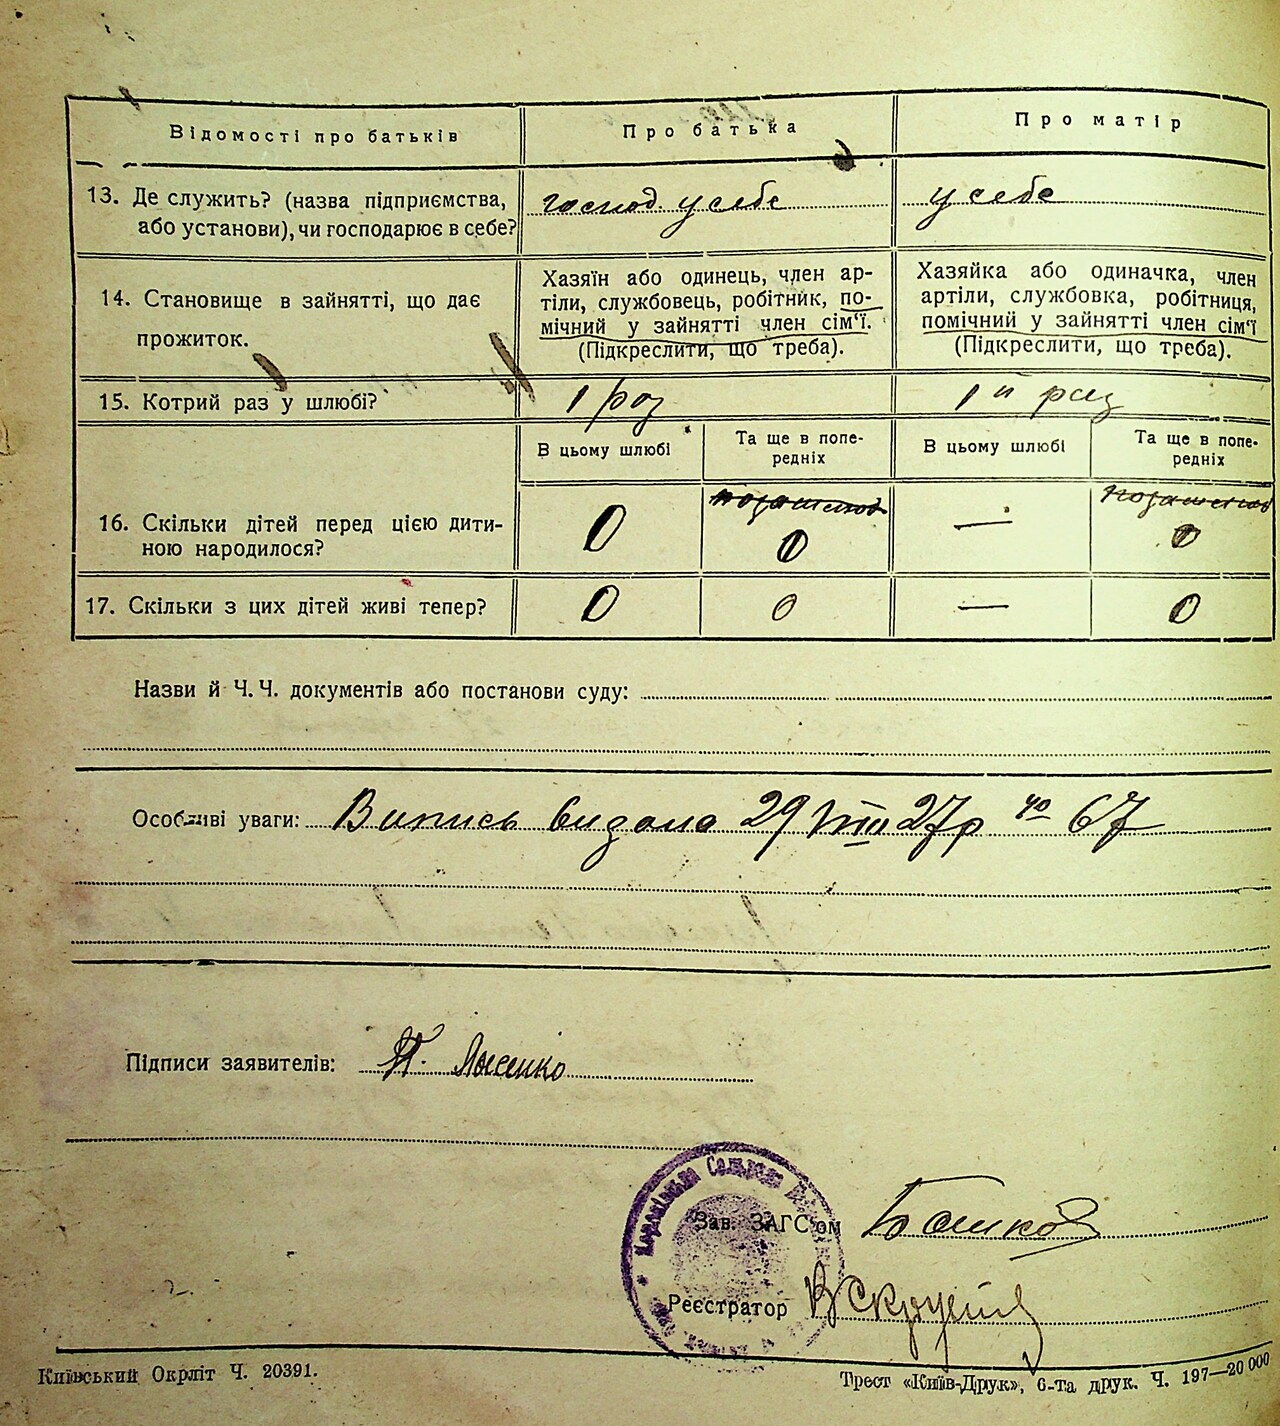 Відомості про батьків
Про батька
Про матір
13. Де служить? (назва підприємства,
або установи), чи господарює в себе?
господ. у себе
у себе
14. Становище в зайнятті, що дає
прожиток.
Хазяїн або одинець, член ар-
тіли, службовець, робітник, по-
мічний у зайнятті член сім'ї.
(Підкреслити, що треба).
Хазяйка або одиначка, член
артіли, службовка, робітниця,
помічний у зайнятті член сім'ї
(Підкреслити, що треба).
15. Котрий раз у шлюбі?
1 раз
1й раз
В цьому шлюбі
Та ще в попе-
редніх
В цьому шлюбі
Та ще в попе-
редніх
16. Скільки дітей перед цією дити-
ною народилося?
0
0
—
0
17. Скільки з цих дітей живі тепер?
0
0
—
0
Назви й Ч. Ч. документів або постанови суду:
Особливі уваги: Випись видана 29 VIII 27р № 67
Підписи заявителів: Лысенко
Зав. ЗАГС'ом
Реєстратор
Київський Окрліт Ч. 20391.
Трест «Київ-Друк», 6-та друк. Ч. 197—20 000